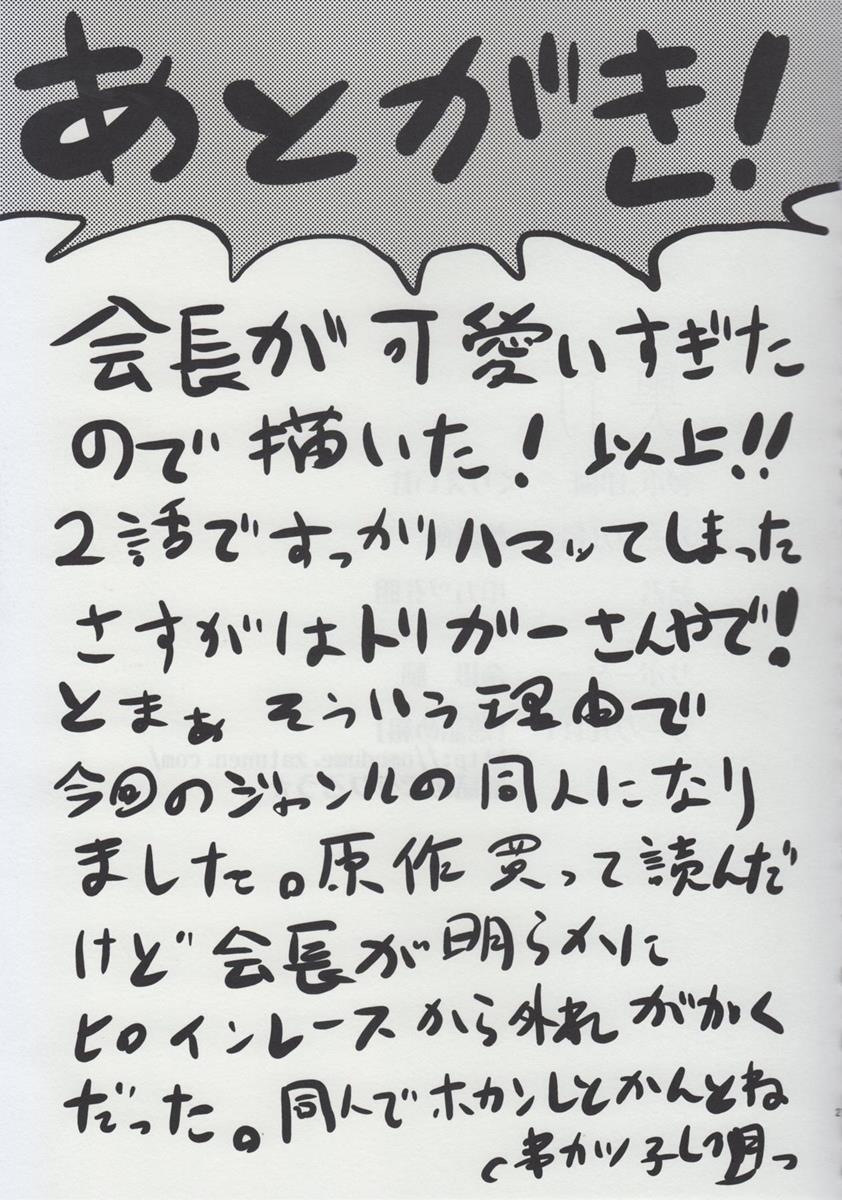 あとがき!
会長が可愛いすぎた
ので描いた! 以上!!
2話ですっかりハマッてしまった
さすがはトリガーさんやで!
とまぁ そういう理由で
今回のジャンルの同人になり
ました。原作買って読んだ
けど会長が明らかに
ヒロインレースから外れ ががく
だった。同人でホカンしとかんとね